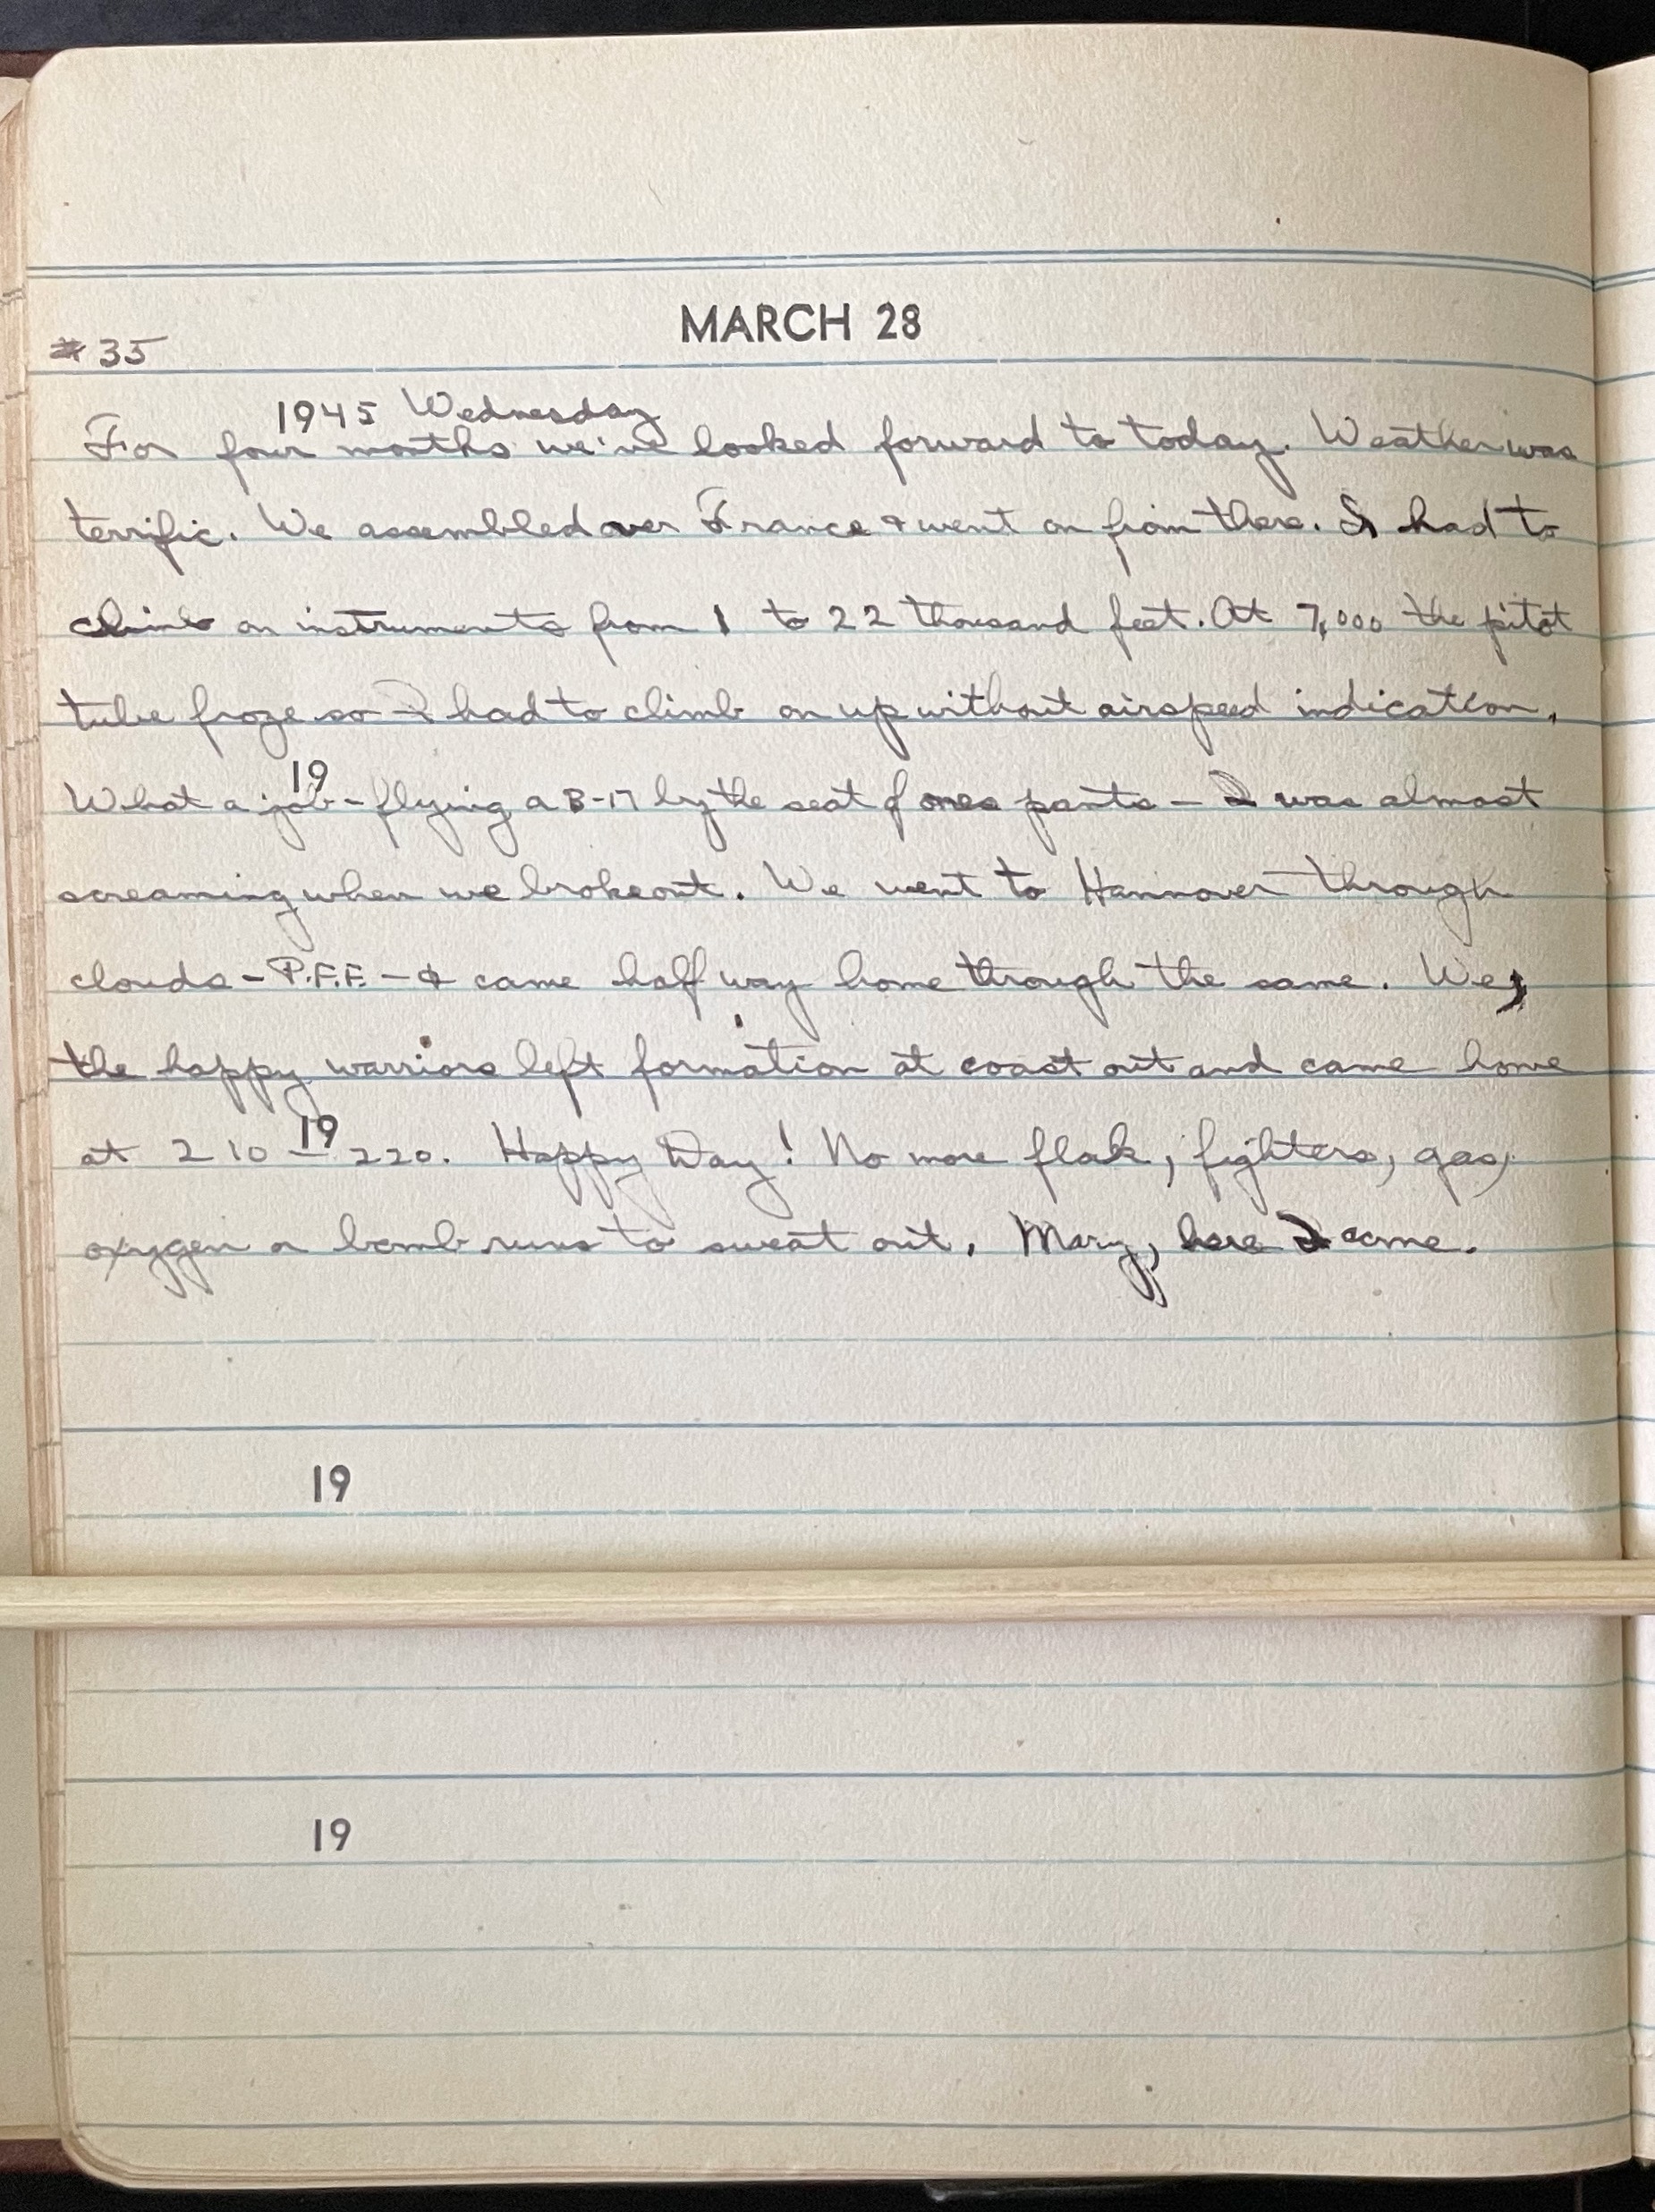 MARCH 28
#35
1945 Wednesday
For four months we've looked forward to today. Weather was
terrific. We assembled over France & went on from there. I had to
climb on instruments from 1 to 22 thousand feet. At 7,000 the pitot
tube froze so I had to climb on up without airspeed indication.
19
What a job - flying a B-17 by the seat of ones pants - I was almost
screaming when we broke out. We went to Hannover through
clouds - P.F.F. - & came half way home through the same. We,
the happy warriors left formation at coast out and came home
19
at 210 - 220. Happy Day! No more flak, fighters, gas,
oxygen or bomb runs to sweat out. Mary, here I come.
19
19